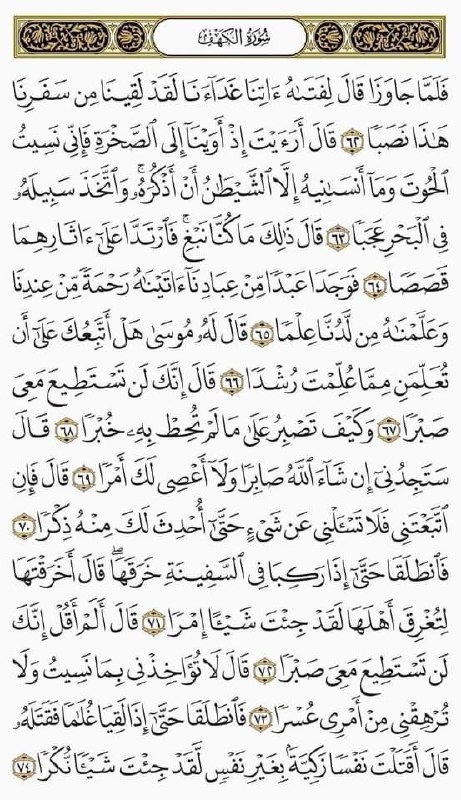 سُورَةُ الكَهۡفِ
فَلَمَّا جَاوَزَا قَالَ لِفَتَىٰهُ ءَاتِنَا غَدَآءَنَا لَقَدۡ لَقِينَا مِن سَفَرِنَا
هَٰذَا نَصَبٗا ٦٢ قَالَ أَرَءَيۡتَ إِذۡ أَوَيۡنَآ إِلَى ٱلصَّخۡرَةِ فَإِنِّي نَسِيتُ
ٱلۡحُوتَ وَمَآ أَنسَىٰنِيهُ إِلَّا ٱلشَّيۡطَٰنُ أَنۡ أَذۡكُرَهُۥۚ وَٱتَّخَذَ سَبِيلَهُۥ
فِي ٱلۡبَحۡرِ عَجَبٗا ٦٣ قَالَ ذَٰلِكَ مَا كُنَّا نَبۡغِۚ فَٱرۡتَدَّا عَلَىٰٓ ءَاثَارِهِمَا
قَصَصٗا ٦٤ فَوَجَدَا عَبۡدٗا مِّنۡ عِبَادِنَآ ءَاتَيۡنَٰهُ رَحۡمَةٗ مِّنۡ عِندِنَا
وَعَلَّمۡنَٰهُ مِن لَّدُنَّا عِلۡمٗا ٦٥ قَالَ لَهُۥ مُوسَىٰ هَلۡ أَتَّبِعُكَ عَلَىٰٓ أَن
تُعَلِّمَنِ مِمَّا عُلِّمۡتَ رُشۡدٗا ٦٦ قَالَ إِنَّكَ لَن تَسۡتَطِيعَ مَعِيَ
صَبۡرٗا ٦٧ وَكَيۡفَ تَصۡبِرُ عَلَىٰ مَا لَمۡ تُحِطۡ بِهِۦ خُبۡرٗا ٦٨ قَالَ
سَتَجِدُنِيٓ إِن شَآءَ ٱللَّهُ صَابِرٗا وَلَآ أَعۡصِي لَكَ أَمۡرٗا ٦٩ قَالَ فَإِنِ
ٱتَّبَعۡتَنِي فَلَا تَسۡـَٔلۡنِي عَن شَيۡءٍ حَتَّىٰٓ أُحۡدِثَ لَكَ مِنۡهُ ذِكۡرٗا ٧٠
فَٱنطَلَقَا حَتَّىٰٓ إِذَا رَكِبَا فِي ٱلسَّفِينَةِ خَرَقَهَاۖ قَالَ أَخَرَقۡتَهَا
لِتُغۡرِقَ أَهۡلَهَا لَقَدۡ جِئۡتَ شَيۡـًٔا إِمۡرٗا ٧١ قَالَ أَلَمۡ أَقُلۡ إِنَّكَ
لَن تَسۡتَطِيعَ مَعِيَ صَبۡرٗا ٧٢ قَالَ لَا تُؤَاخِذۡنِي بِمَا نَسِيتُ وَلَا
تُرۡهِقۡنِي مِنۡ أَمۡرِي عُسۡرٗا ٧٣ فَٱنطَلَقَا حَتَّىٰٓ إِذَا لَقِيَا غُلَٰمٗا فَقَتَلَهُۥ
قَالَ أَقَتَلۡتَ نَفۡسٗا زَكِيَّةَۢ بِغَيۡرِ نَفۡسٖ لَّقَدۡ جِئۡتَ شَيۡـٔٗا نُّكۡرٗا ٧٤